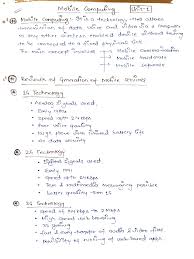 Mobile Computing Unit-1
Mobile Computing :- It is a technology that allows
transmission of data, voice and video via a computer
or any other wireless enabled device without having
to be connected to a fixed physical link.
The main concept involves → Mobile communication
→ Mobile hardware
→ Mobile software
of Generation of Mobile services
1G Technology
Analog signals used,
Early 1980
Speed upto 2.4 kbps
Poor voice quality
Large phone size limited battery life
No data security
2G Technology
Digital signals used,
Early 1991
Speed upto 64 kbps
Text & multimedia messaging possible
Better quality than 1G
3G Technology
Speed of 144 kbps to 2 Mbps
High speed web browsing